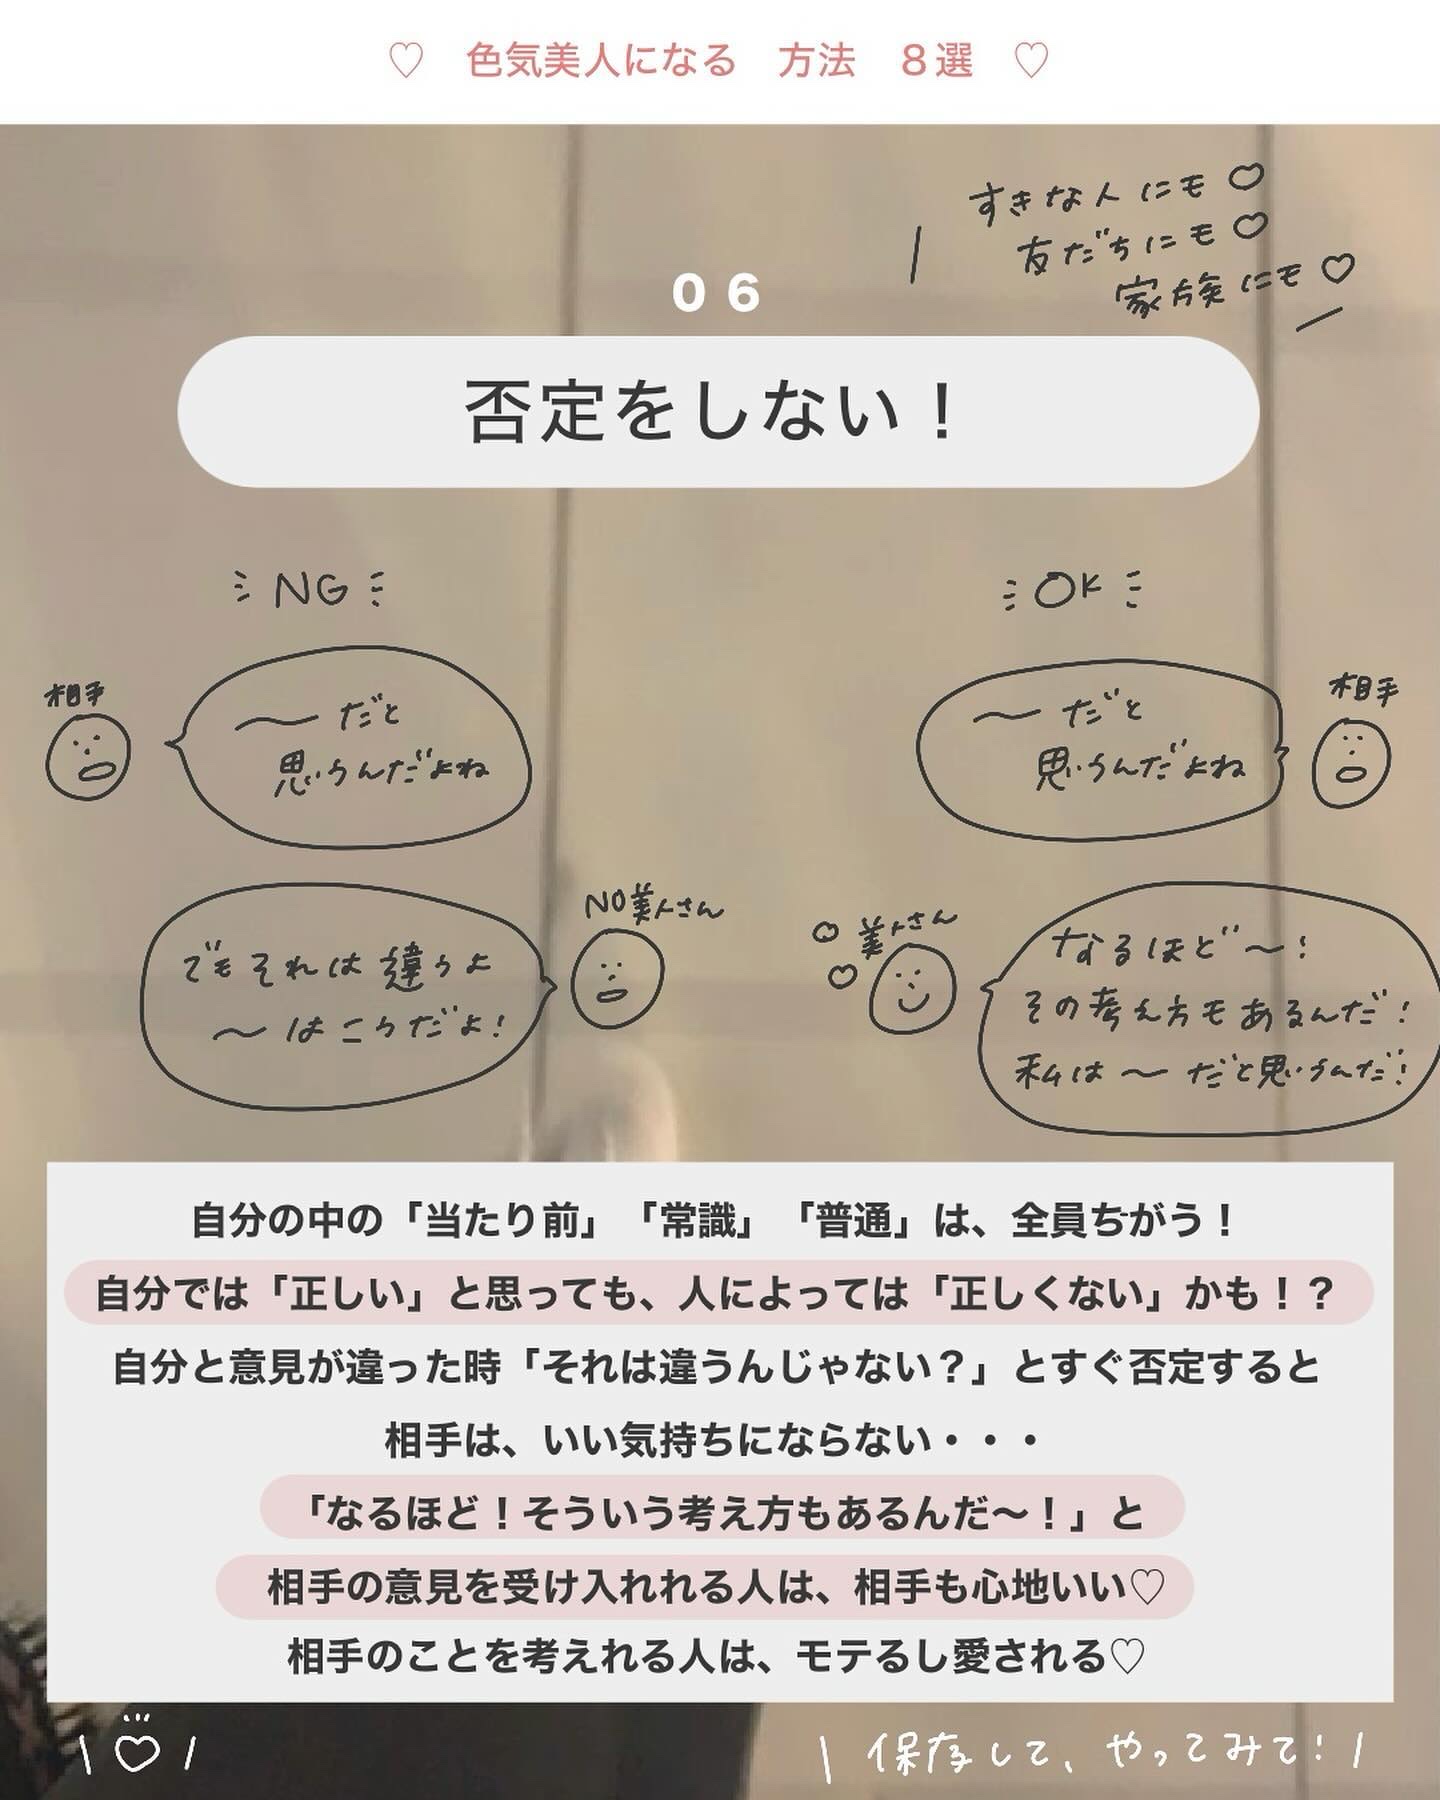 ♡ 色気美人になる 方法 8選 ♡
すきな人にモ♡
友だちにモ♡
家族にモ♡
06
否定をしない！
NG
OK
相手
〜だと
思うんだよね
〜だと
思うんだよね
相手
NO美人さん
でもそれは違うよ
〜はこうだよ！
美人さん
なるほど〜！
その考え方もあるんだ！
私は〜だと思うんだ！
自分の中の「当たり前」「常識」「普通」は、全員ちがう！
自分では「正しい」と思っても、人によっては「正しくない」かも！？
自分と意見が違った時「それは違うんじゃない？」とすぐ否定すると
相手は、いい気持ちにならない・・・
「なるほど！そういう考え方もあるんだ〜！」と
相手の意見を受け入れれる人は、相手も心地いい♡
相手のことを考えれる人は、モテるし愛される♡
保存して、やってみて！